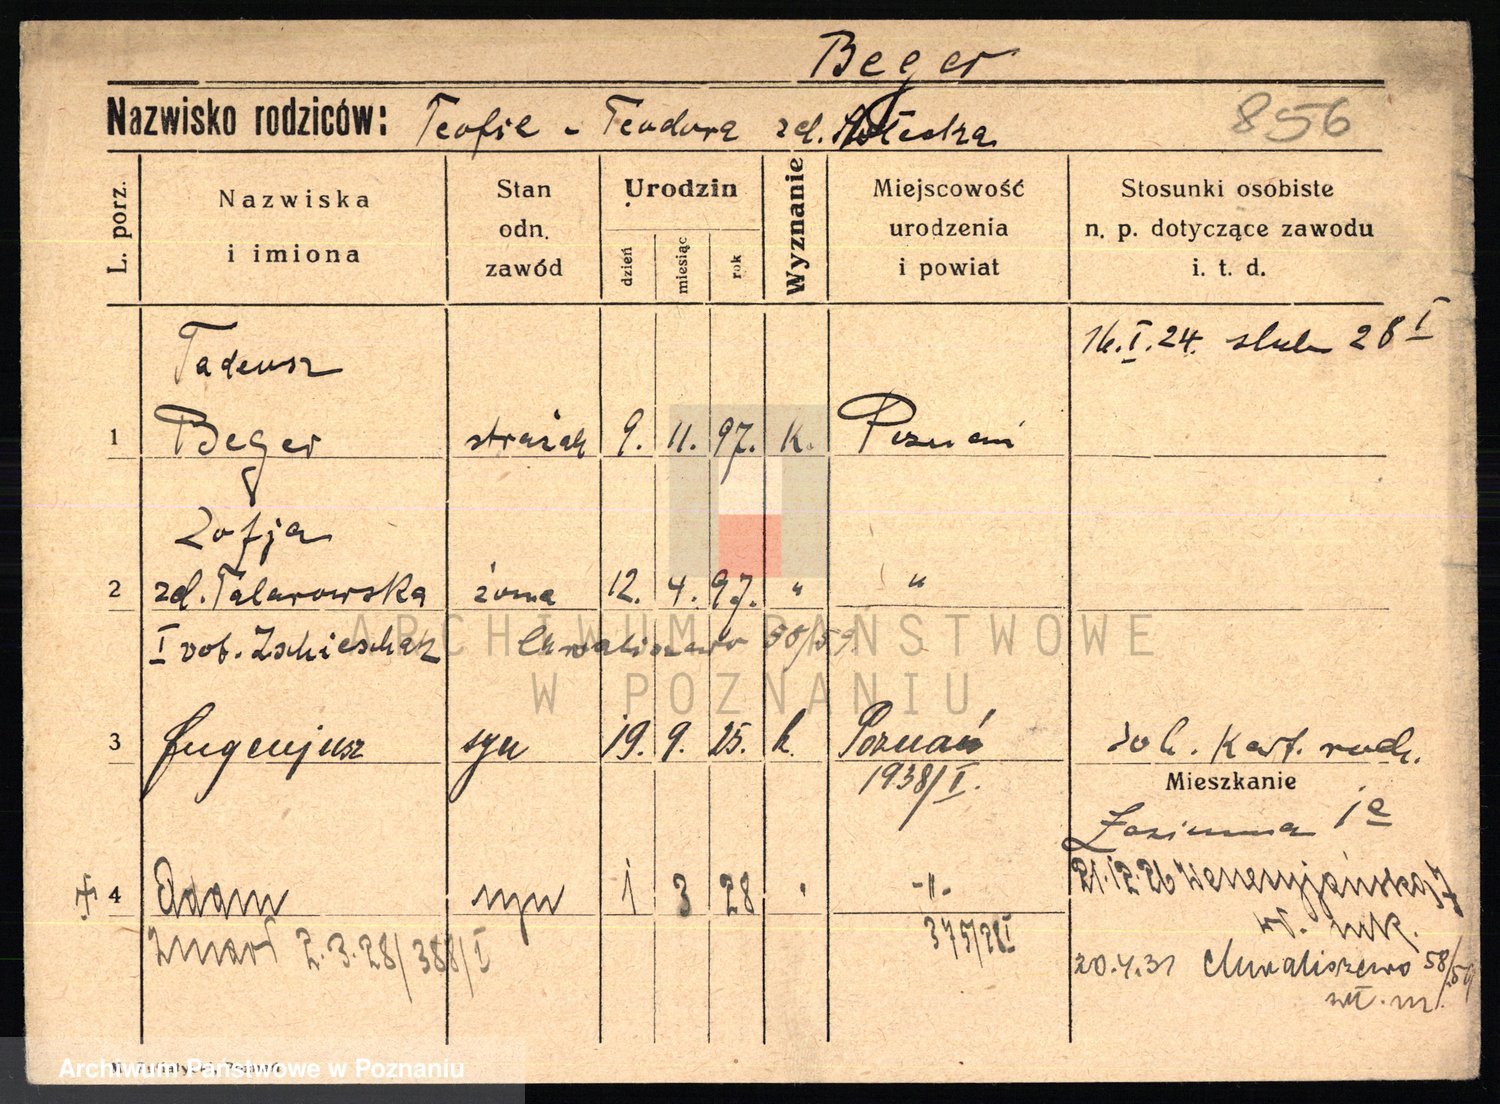 Beger
Nazwisko rodziców: Teofil - Teodora zd.
856
L. porz.
Nazwiska i imiona
Stan odn. zawód
Urodzin
dzień
miesiąc
rok
Wyznanie
Miejscowość urodzenia i powiat
Stosunki osobiste n. p. dotyczące zawodu i. t. d.
Tadeusz
16.I.24. ślub 28 I
1 Beger strażak 9. 11. 97. K. Poznań
Zofja
2 zd. Talarowska żona 12. 4. 97. " "
I vot. Zschieschak Chwaliszewo 58/59
3 Eugenjusz syn 19. 9. 25. k. Poznań
1938/I.
Mieszkanie
1a
4 Adam syn 1 3 28 " -"-
21.12.26 Wenecjańska 7
zmarł 2.3.28/388/I
375/28I
20.4.31 Chwaliszewo 58/59
ARCHIWUM PAŃSTWOWE
W POZNANIU
Archiwum Państwowe w Poznaniu